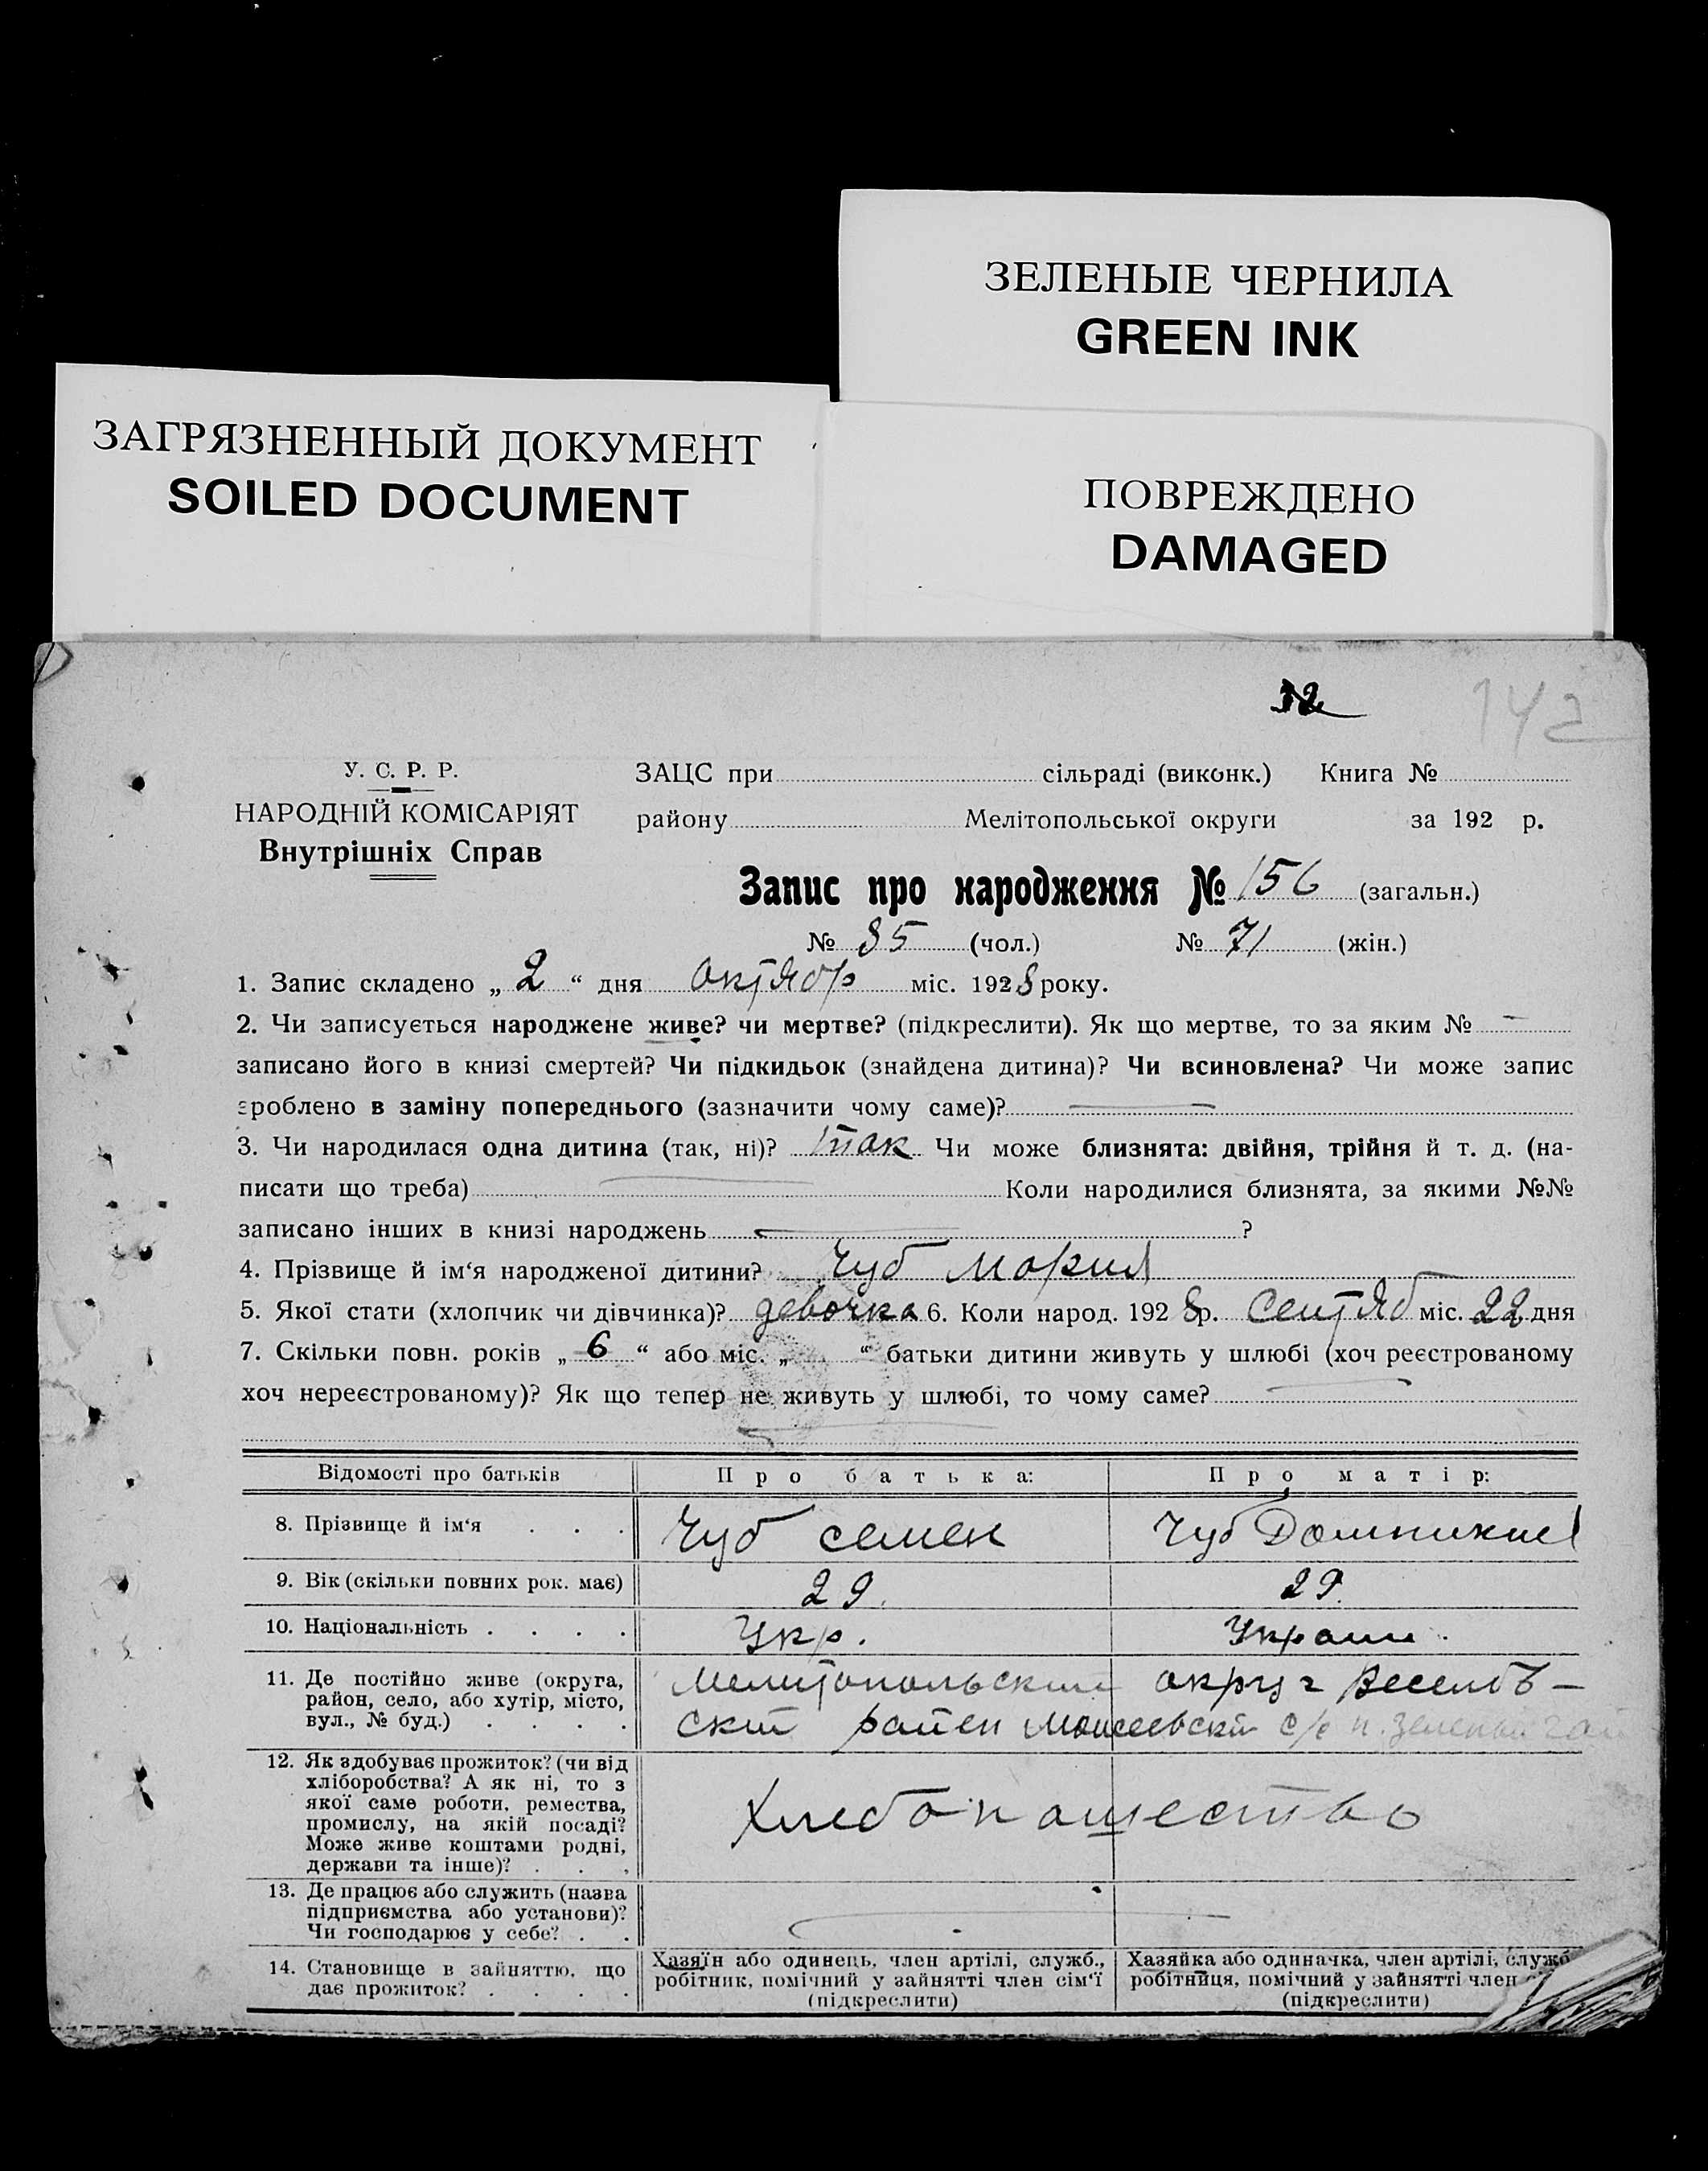 ЗЕЛЕНЫЕ ЧЕРНИЛА
GREEN INK
ЗАГРЯЗНЕННЫЙ ДОКУМЕНТ
SOILED DOCUMENT
ПОВРЕЖДЕНО
DAMAGED
32
142
У. С. Р. Р.
НАРОДНІЙ КОМІСАРІЯТ
Внутрішніх Справ
ЗАЦС при сільраді (виконк.) Книга №
району Мелітопольської округи за 192 р.
Запис про народження № 156 (загальн.)
№ 85 (чол.) № 71 (жін.)
1. Запис складено „ 2 “ дня октябр міс. 1928 року.
2. Чи записується народжене живе? чи мертве? (підкреслити). Як що мертве, то за яким № —
записано його в книзі смертей? Чи підкидьок (знайдена дитина)? Чи всиновлена? Чи може запис
зроблено в заміну попереднього (зазначити чому саме)? —
3. Чи народилася одна дитина (так, ні)? так Чи може близнята: двійня, трійня й т. д. (на-
писати що треба) — Коли народилися близнята, за якими №№
записано інших в книзі народжень — ?
4. Прізвище й ім‘я народженої дитини? Чуб Мария
5. Якої стати (хлопчик чи дівчинка)? девочка 6. Коли народ. 1928 р. Сентяб міс. 22 дня
7. Скільки повн. років „ 6 “ або міс. „ “ батьки дитини живуть у шлюбі (хоч реєстрованому
хоч нереєстрованому)? Як що тепер не живуть у шлюбі, то чому саме? —
Відомості про батьків Про батька: Про матір:
8. Прізвище й ім‘я . . . Чуб Семен Чуб Домникия
9. Вік (скільки повних рок. має) 29. 29.
10. Національність . . . . Укр. Украин.
11. Де постійно живе (округа, район, село, або хутір, місто, вул., № буд.) . . . . Мелитопольский округ Веселов-
ский район Моисеевский с/с п. Зеленый гай
12. Як здобуває прожиток? (чи від хліборобства? А як ні, то з якої саме роботи, ремества, промислу, на якій посаді? Може живе коштами родні, держави та інше)? . . . Хлебопашество
13. Де працює або служить (назва підприємства або установи)? Чи господарює у себе? . . —
14. Становище в зайняттю, що дає прожиток? . . . .
Хазяїн або одинець, член артілі, служб., робітник, помічний у зайнятті член сім‘ї (підкреслити)
Хазяйка або одиначка, член артілі, служб робітниця, помічний у зайнятті член (підкреслити)